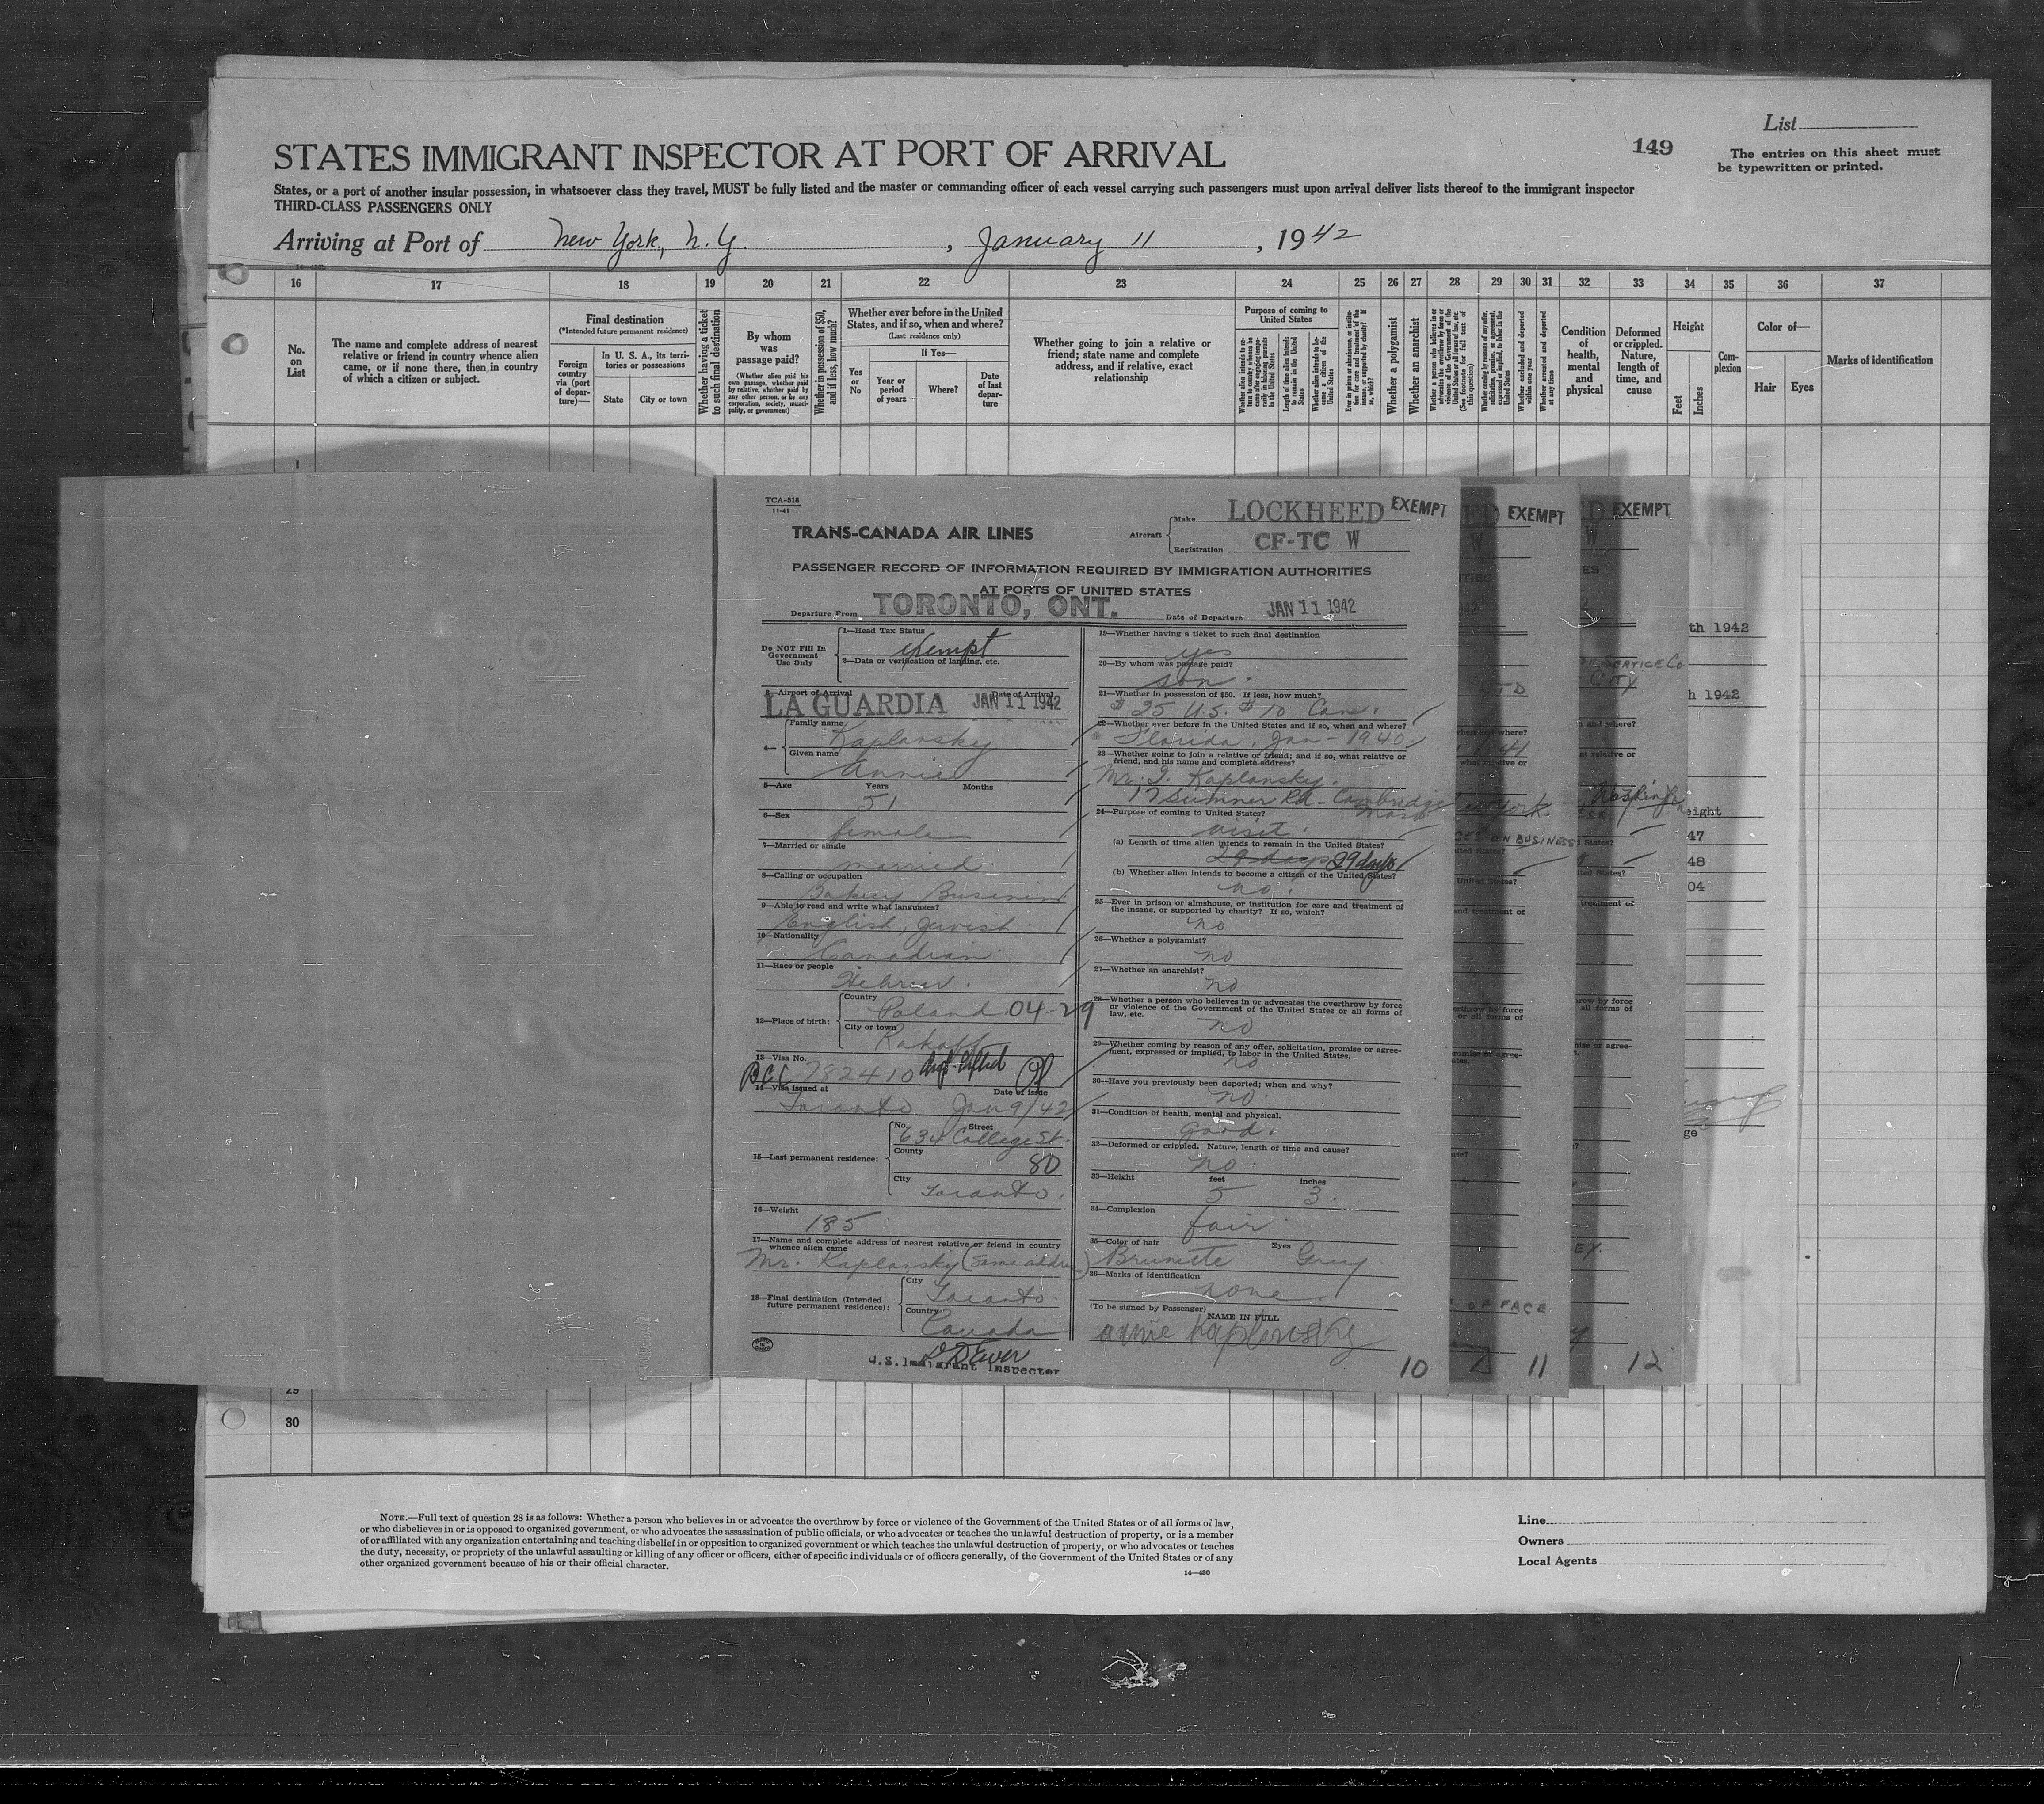 List
149
The entries on this sheet must
be typewritten or printed.
STATES IMMIGRANT INSPECTOR AT PORT OF ARRIVAL
States, or a port of another insular possession, in whatsoever class they travel, MUST be fully listed and the master or commanding officer of each vessel carrying such passengers must upon arrival deliver lists thereof to the immigrant inspector
THIRD-CLASS PASSENGERS ONLY
Arriving at Port of New York, N.Y., January 11, 1942
16 17 18 19 20 21 22 23 24 25 26 27 28 29 30 31 32 33 34 35 36 37
No.
on
List
The name and complete address of nearest
relative or friend in country whence alien
came, or if none there, then in country
of which a citizen or subject.
Final destination
(*Intended future permanent residence)
Foreign
country
via (port
of depar-
ture)—
In U. S. A., its terri-
tories or possessions
State
City or town
Whether having a ticket
to such final destination
By whom
was
passage paid?
(Whether alien paid his
own passage, whether paid
by relative, whether paid by
any other person, or by any
corporation, society, munici-
pality, or government)
Whether in possession of $50,
and if less, how much?
Whether ever before in the United
States, and if so, when and where?
(Last residence only)
If Yes—
Yes
or
No
Year or
period
of years
Where?
Date
of last
depar-
ture
Whether going to join a relative or
friend; state name and complete
address, and if relative, exact
relationship
Purpose of coming to
United States
Whether a polygamist
Whether an anarchist
Condition
of
health,
mental
and
physical
Deformed
or crippled.
Nature,
length of
time, and
cause
Height
Feet
Inches
Com-
plexion
Color of—
Hair
Eyes
Marks of identification
1
TCA-518
11-41
TRANS-CANADA AIR LINES
Aircraft
Make LOCKHEED
EXEMPT
Registration CF-TC W
PASSENGER RECORD OF INFORMATION REQUIRED BY IMMIGRATION AUTHORITIES
AT PORTS OF UNITED STATES
Departure From TORONTO, ONT.
Date of Departure JAN 11 1942
Do NOT Fill In
Government
Use Only
1—Head Tax Status
exempt
2—Data or verification of landing, etc.
3—Airport of Arrival
Date of Arrival
LA GUARDIA JAN 11 1942
4—
Family name
Kaplansky
Given name
Annie
5—Age Years Months
51
6—Sex
female
7—Married or single
married
8—Calling or occupation
Bakery Business
9—Able to read and write what languages?
English, Jewish
10—Nationality
Canadian
11—Race or people
Hebrew.
12—Place of birth:
Country
Poland 04-29
City or town
Rakoff
13—Visa No.
BCC 782410
14—Visa issued at
Date of issue
Toronto Jan 9/42
15—Last permanent residence:
No. Street
634 College St.
County
80
City
Toronto.
16—Weight
185
17—Name and complete address of nearest relative or friend in country
whence alien came
Mr. Kaplansky (Same address)
18—Final destination (Intended
future permanent residence):
City
Toronto.
Country
Canada
U.S. Immigrant Inspector
19—Whether having a ticket to such final destination
yes
20—By whom was passage paid?
son.
21—Whether in possession of $50. If less, how much?
$25 U.S. $10 Can.
22—Whether ever before in the United States and if so, when and where?
Florida, Jan - 1940
23—Whether going to join a relative or friend; and if so, what relative or
friend, and his name and complete address?
Mr. I. Kaplansky.
17 Sumner Rd - Cambridge
Mass
24—Purpose of coming to United States?
visit.
(a) Length of time alien intends to remain in the United States?
29 days 29 days
(b) Whether alien intends to become a citizen of the United States?
no.
25—Ever in prison or almshouse, or institution for care and treatment of
the insane, or supported by charity? If so, which?
no
26—Whether a polygamist?
no
27—Whether an anarchist?
no
28—Whether a person who believes in or advocates the overthrow by force
or violence of the Government of the United States or all forms of
law, etc.
no
29—Whether coming by reason of any offer, solicitation, promise or agree-
ment, expressed or implied, to labor in the United States.
no
30—Have you previously been deported; when and why?
no.
31—Condition of health, mental and physical.
good.
32—Deformed or crippled. Nature, length of time and cause?
no.
33—Height feet inches
5 3.
34—Complexion
fair
35—Color of hair Eyes
Brunette Grey
36—Marks of identification
none.
(To be signed by Passenger)
NAME IN FULL
annie Kaplensky
10
EXEMPT
W
OF FACE
11
EXEMPT
W
12
th 1942
h 1942
eight
47
48
04
ge
29
30
NOTE.—Full text of question 28 is as follows: Whether a person who believes in or advocates the overthrow by force or violence of the Government of the United States or of all forms of law,
or who disbelieves in or is opposed to organized government, or who advocates the assassination of public officials, or who advocates or teaches the unlawful destruction of property, or is a member
of or affiliated with any organization entertaining and teaching disbelief in or opposition to organized government or which teaches the unlawful destruction of property, or who advocates or teaches
the duty, necessity, or propriety of the unlawful assaulting or killing of any officer or officers, either of specific individuals or of officers generally, of the Government of the United States or of any
other organized government because of his or their official character.
14—480
Line
Owners
Local Agents